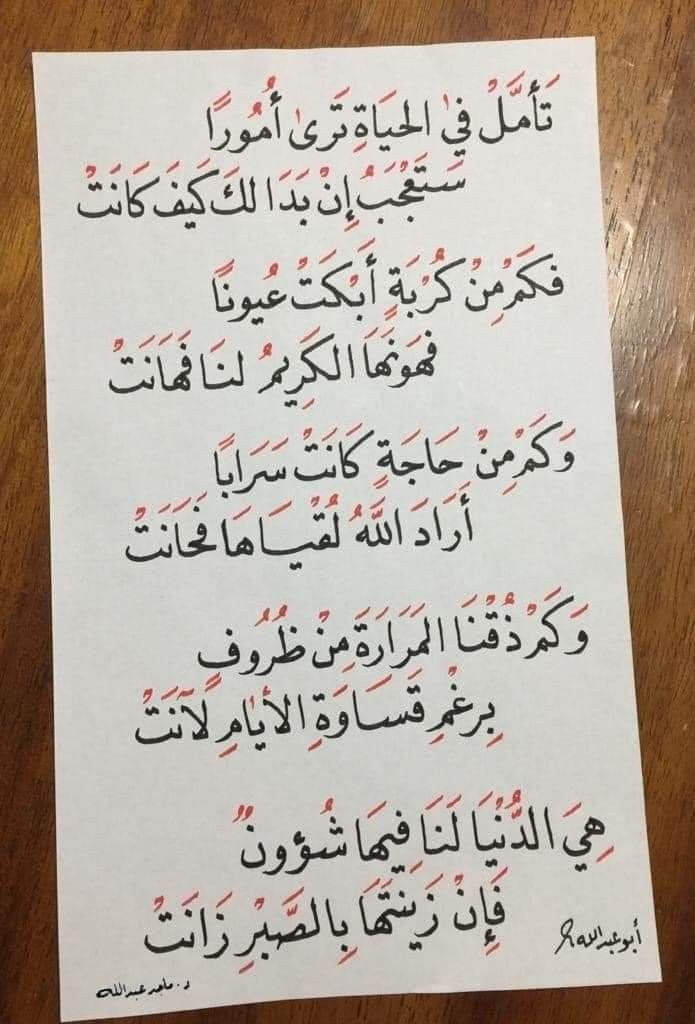 تَأَمَّلْ فيْ الحيَاةِ تَرىٰ أُمُورًا
سَتَعْجَبُ إِنْ بَدَا لكَ كَيفَ كَانَتْ
فكَمْ مِنْ كُرْبَةٍ أَبْكَتْ عُيونًا
فهَونَهَا الكَرِيمُ لنَا فَهَانَتْ
وَكَمْ مِنْ حَاجَةٍ كَانَتْ سَرَابًا
أَرَادَ اللَّهُ لُقْيَاهَا فَحَانَتْ
وَكَمْ ذُقْنَا المَرَارَةَ مِنْ ظُرُوفٍ
بِرغْمِ قَسَاوَةِ الأيَامِ لَآنَتْ
هِيَ الدُّنْيَا لَنَا فِيهَا شُؤونٌ
فَإِنْ زَيَنتَهَا بِالصَّبْرِ زَانَتْ
أبو عبدالله
د. ماجد عبدالله